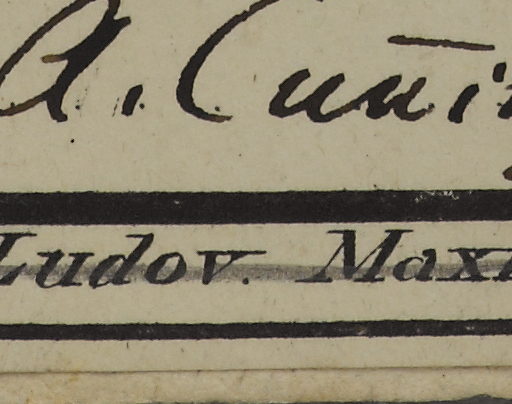 A. Cuñi
Ludov. Maxi